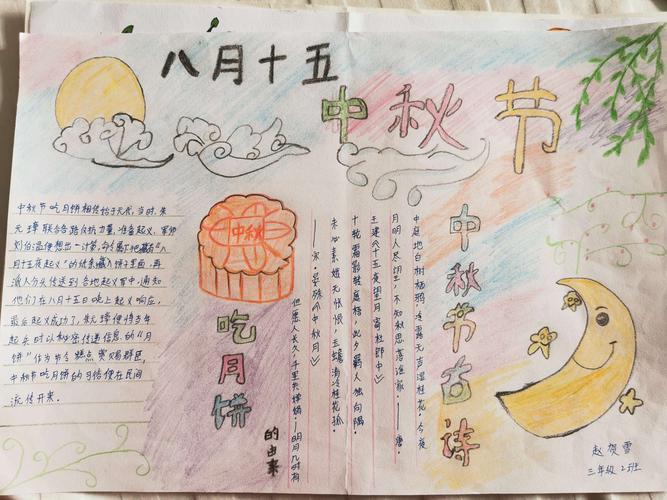 八月十五
中秋节
中秋节吃月饼相传始于元代,当时,朱
元璋联合各路反抗力量,准备起义,军师
刘伯温便想出一计策,命令属下把藏有"八
月十五夜起义"的纸条藏入饼子里面,再
派人分头传送到各地起义军中,通知
他们在八月十五日晚上起义响应,
最后起义成功了,朱元璋便将当年
起兵时以秘密传递信息的"月
饼"作为节令糕点赏赐群臣,
中秋节吃月饼的习俗便在民间
流传开来。
中秋
吃月饼
的由来
中秋节古诗
中庭地白树栖鸦,冷露无声湿桂花。今夜
月明人尽望,不知秋思落谁家。——唐·
王建《十五夜望月寄杜郎中》
十轮霜影转庭梧,此夕羁人独向隅。
未必素娥无怅恨,玉蟾清冷桂花孤。
——宋·晏殊《中秋月》
但愿人长久,千里共婵娟。——明月几时有
赵贺雪
三年级2班